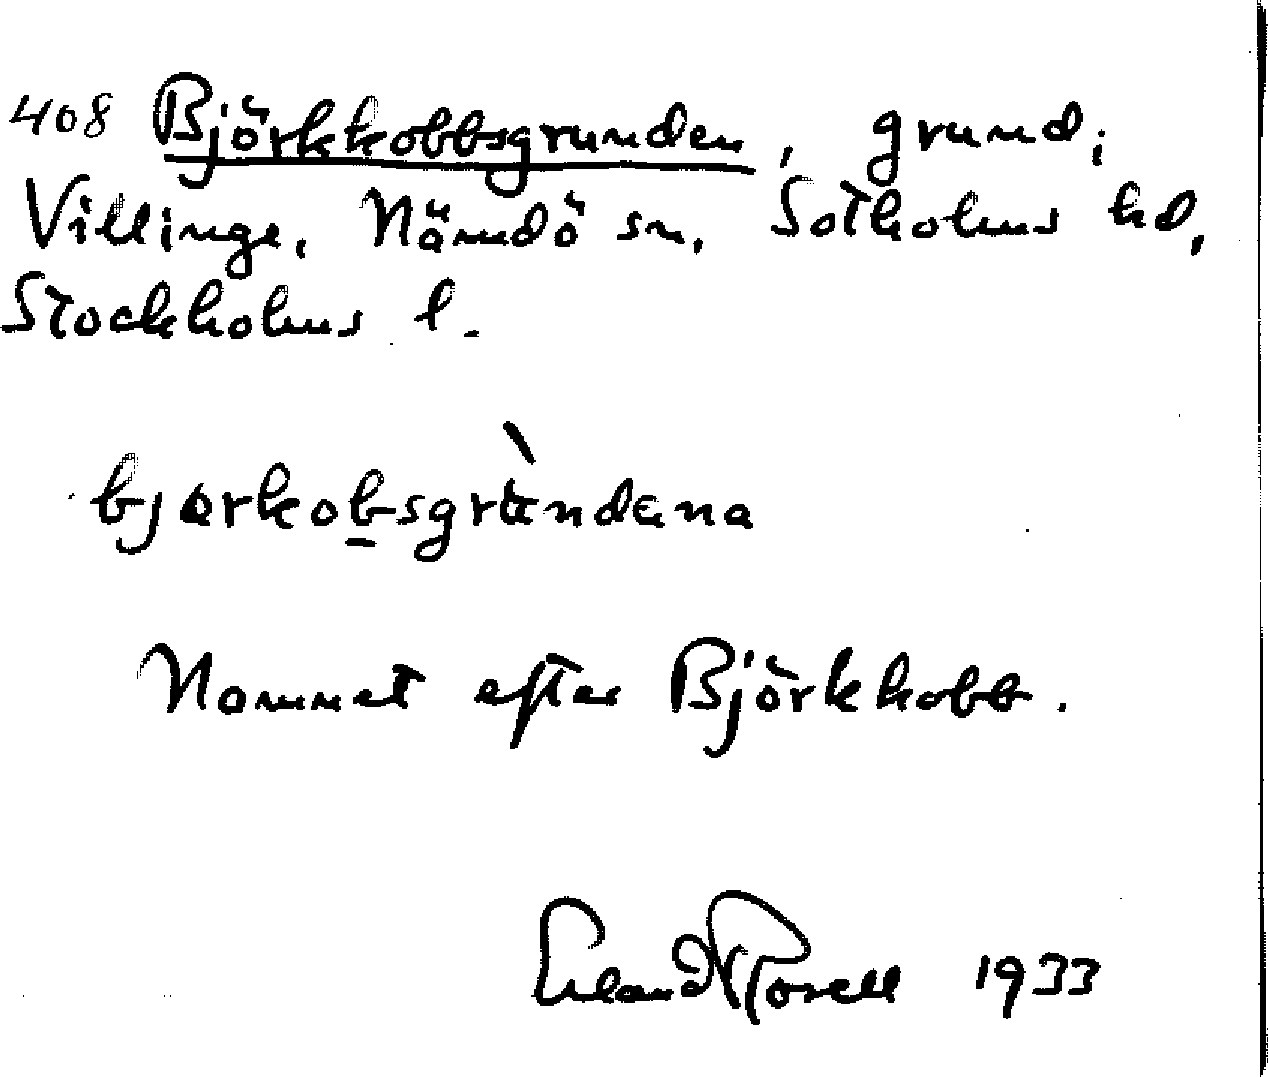 408 Björkkobbsgrunden, grund;
Villinge, Nämdö sn, Sotholms hd,
Stockholms l.
Namnet efter Björkkobb.
Erland Rosell 1933